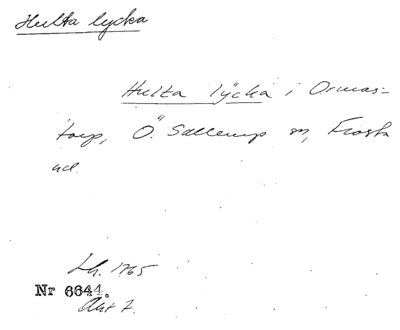 Hulta lycka
Hulta lycka i Ormas-
torp, Ö. Sallerup sn, Frosta
hd.
Lh. 1765
Nr 6644.
Akt 7.